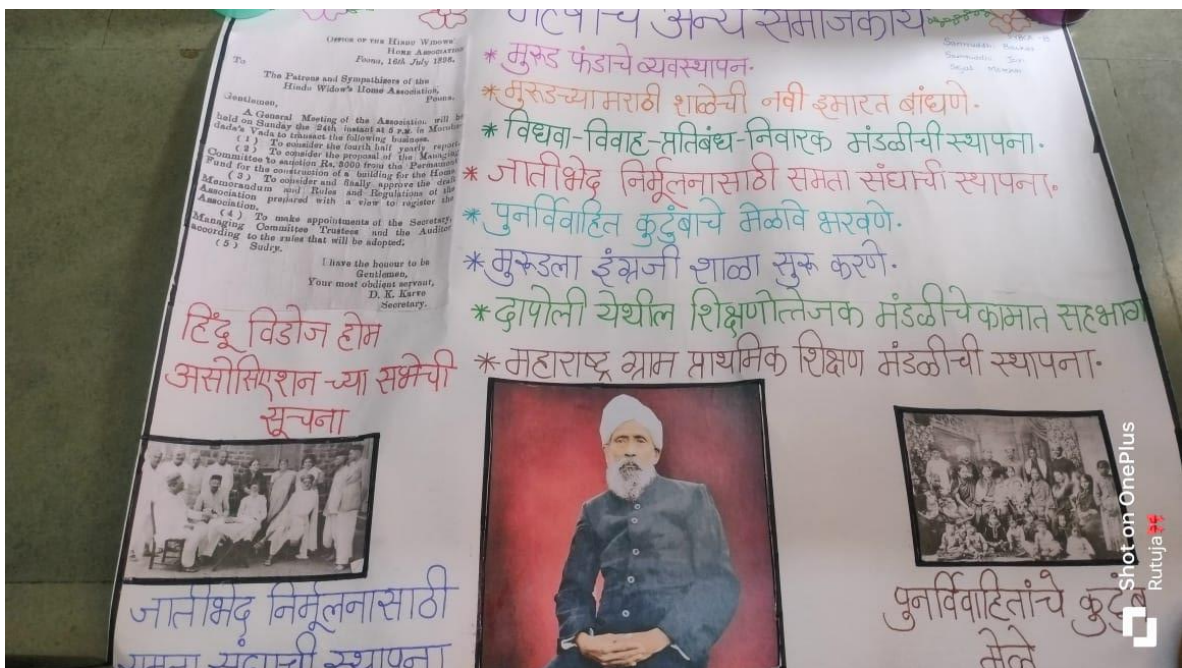 महर्षींचे अन्य समाजकार्य
OFFICE OF THE HINDU WIDOWS'
HOME ASSOCIATION
Poona, 16th July 1898.
To
The Patrons and Sympathizers of the
Hindu Widow's Home Association,
Poona.
Gentlemen,
A General Meeting of the Association will be
held on Sunday the 24th instant at 5 P.M. in Morobadada's Vada to transact the following business.
( 1 ) To consider the fourth half yearly report.
( 2 ) To consider the proposal of the Managing
Committee to sanction Rs. 3000 from the Permanent
Fund for the construction of a building for the Home
( 3 ) To consider and finally approve the draft
Memorandum and Rules and Regulations of the
Association prepared with a view to register the
Association.
( 4 ) To make appointments of the Secretary,
Managing Committee Trustees and the Auditor
according to the rules that will be adopted.
( 5 ) Sudry.
I have the honour to be
Gentlemen,
Your most obdient servant,
D. K. Karve
Secretary.
हिंदू विडोज होम
असोसिएशन च्या सभेची
सूचना
* मुरुड फंडाचे व्यवस्थापन.
* मुरुडच्या मराठी शाळेची नवी इमारत बांधणे.
* विधवा-विवाह-प्रतिबंध-निवारक मंडळीची स्थापना.
* जातीभेद निर्मूलनासाठी समता संघाची स्थापना.
* पुनर्विवाहित कुटुंबाचे मेळावे भरवणे.
* मुरूडला इंग्रजी शाळा सुरू करणे.
* दापोली येथील शिक्षणोत्तेजक मंडळीचे कामात सहभाग
* महाराष्ट्र ग्राम प्राथमिक शिक्षण मंडळीची स्थापना.
जातीभेद निर्मूलनासाठी
समता संघाची स्थापना
पुनर्विवाहितांचे कुटुंब
मेळे
Shot on OnePlus
Rutuja